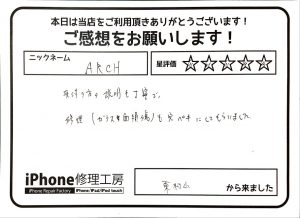 本日は当店をご利用頂きありがとうございます！
ご感想をお願いします！
ニックネーム
ARCH
星評価 ☆☆☆☆☆
受付の方の説明も丁寧で、
修理(ガラス面損傷)も完ペキにしてもらいました
iPhone修理工房
iPhone Repair Factory
iPhone/iPad/iPod touch
東村山 から来ました